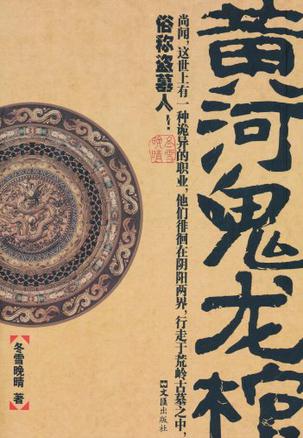 黄河鬼龙棺
尚闻，这世上有一种诡异的职业，他们徘徊在阴阳两界，行走于荒岭古墓之中，
俗称盗墓人！
冬雪
晚晴
【冬雪晚晴 著】
文汇出版社